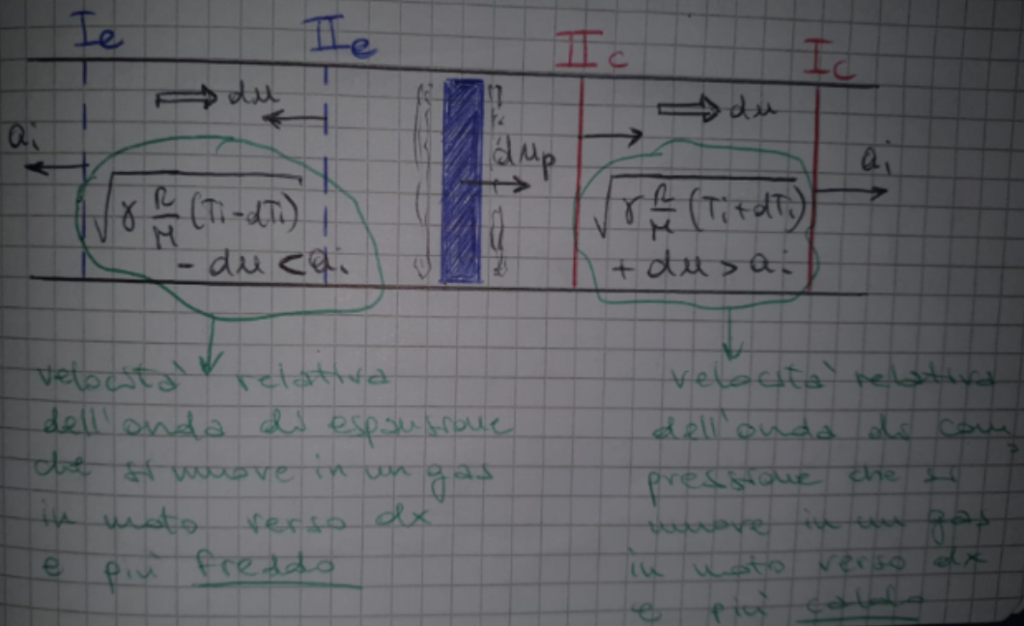 Ie IIe IIc Ic
du du
ai dup ai
√γ R/M (Ti-dTi) √γ R/M (Ti+dTi)
- du < ai + du > ai
velocità relativa
dell'onda di espansione
che si muove in un gas
in moto verso dx
e più freddo
velocità relativa
dell'onda di com-
pressione che si
muove in un gas
in moto verso dx
e più caldo